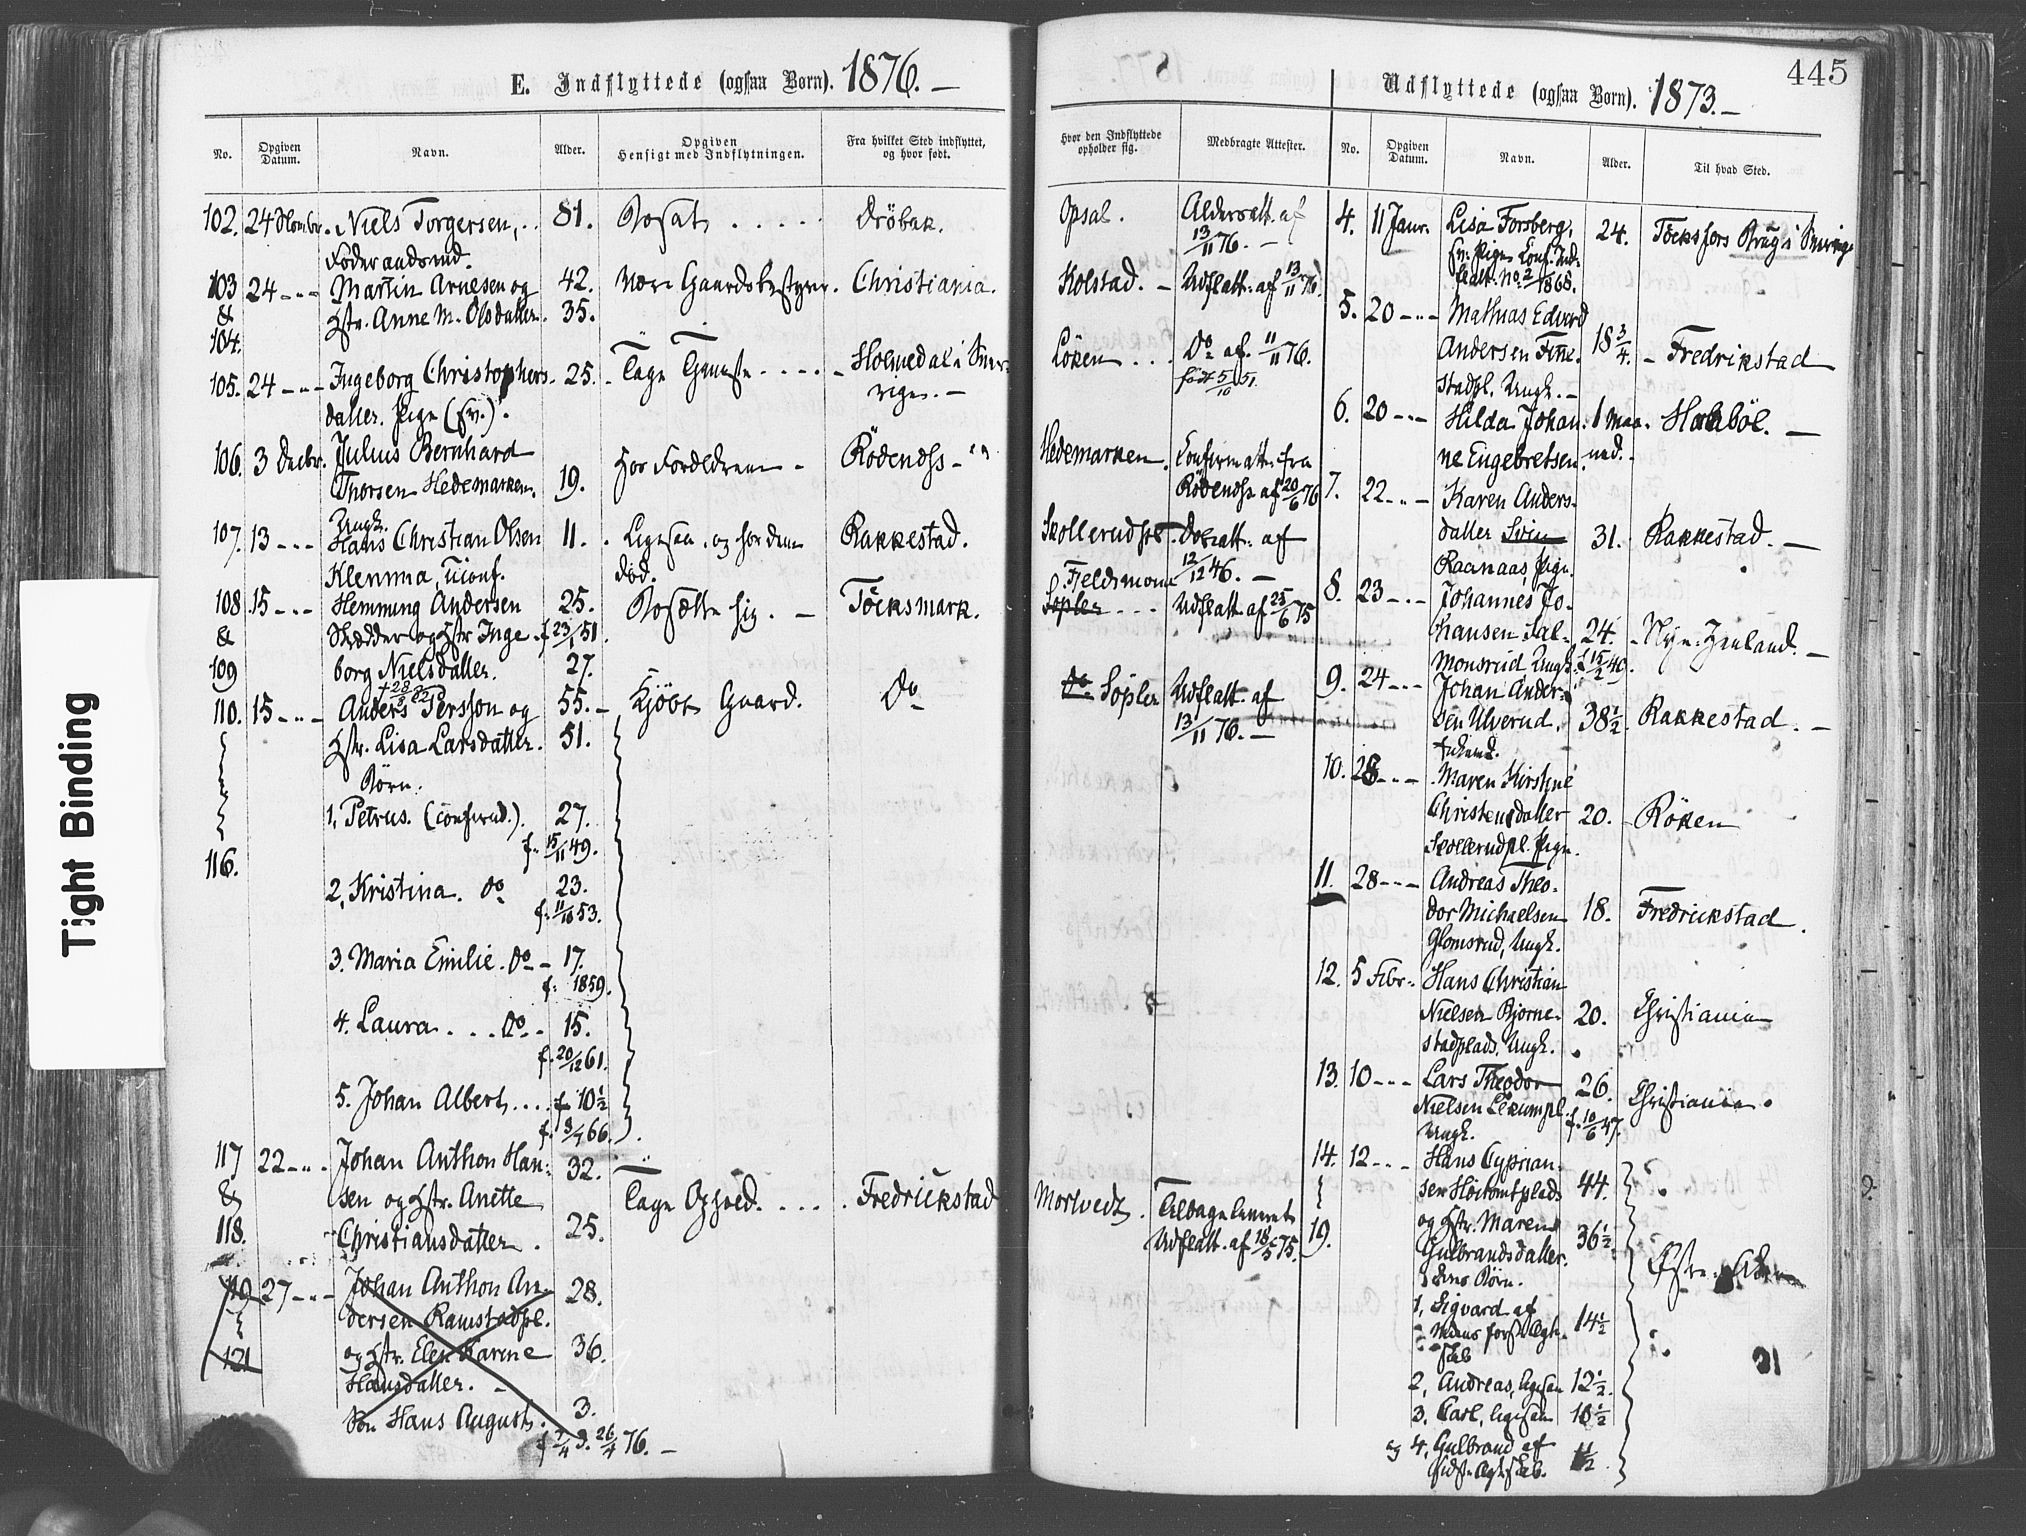 Tight Binding
E. Indflyttede (ogsaa Børn). 1876. —
No.
Opgiven
Datum.
Navn.
Alder.
Opgiven
Hensigt med Indflytningen.
Fra hvilket Sted indflyttet,
og hvor født.
102. 24 Niels Torgersen, 81. Bosat Dröbak.
Föderaadsmd.
103 24 Martin Arnesen og 42. Være Gaardsbestyrer. Christiania.
& Hstr. Anne M. Olsdatter. 35.
104.
105. 24 Ingeborg Christophers- 25. Tage Tjeneste Holmedal i Sver-
datter. Pige (fv.). rige. —
106. 3 Decbr. Julius Bernhard
Thorsen Hedemarken. 19. hos Forældrene Rödenæs
Ungk.
107. 13 Hans Christian Olsen 11. Rakkestad.
Klemma, Uconf. död.
108 15 Hemming Andersen 25. Bosætte sig. — Töcksmark.
& Skrædder og Hstr Inge- f. 23/1 51.
109 borg Nielsdatter. 27.
110. 15 Anders Persson og 55. Kjöbt Gaard. Do
Hstr. Lisa Larsdatter. 51.
Börn:
1, Petrus. (confirmd.). 27.
f. 15/11 49.
116.
2, Kristina. do 23.
f. 11/10 53.
3. Maria Emilie. do 17.
f: 1859.
4. Laura do 15.
f. 20/12 61.
5. Johan Albert 10½
f. 3/7 66.
117 22 Johan Anthon Han- 32.
& sen og Hstr. Anette Tage Ophold. Fredrickstad
118. Christiansdatter. 25.
119 27 Johan Anthon An- 28.
dersen Ramstadpl.
121 og Hstr. Elen Karine 36.
Hansdatter. —
Sön Hans August. 3.
26/4 76. —
445
Udflyttede (ogsaa Børn). 1873. —
Hvor den Indflyttede
opholder sig.
Medbragte Attester.
No.
Opgiven
Datum.
Navn.
Alder.
Til hvad Sted.
Opsal. Aldersatt. af
13/11 76. —
Kolstad. — Udflatt. af 13/11 76.
Löken Do af 11/11 76.
født 5/10 51.
Hedemarken. Confirmatt. fra
Rödenæs af 20/6 76
Skollerudpl. Dobsatt. af
12/12 46. —
Fjeldsmona
Söpler Udflatt. af 25/6 75
do Söpler Udflatt. af
13/11 76. —
Mortvedt. Tilbageleveret
Udflatt. af 18/5 75.
4. 11 Janr. Lisa Forsberg, 24. Töcksfors Brug i Sverige
fv. Pige Conf. Ind-
flatt. No. 2 1868.
5. 20 Mathias Edvard
Andersen 18 3/4. Fredrikstad
stadpl. Ungk. —
6. 20 Hilda Johan- 1 Maa- Haabøl. —
ne Engebretsen. ned.
7. 22 Karen Anders-
datter Svin 31. Rakkestad. —
Raanaas, Pige.
8. 23 Johannes Jo-
hansen Sal- 24. Ny-Zeeland. —
monsrud Ungk. f 15/2 49.
9. 24 Johan Ander-
sen Ulverud, 38½. Rakkestad. —
10. 28 Maren Kirstine
Christensdatter 20. Röken
Skollerudpl. Pige.
11. 28 Andreas Theo-
dor Michaelsen 18. Fredrickstad.
Glomsrud, Ungk.
12. 5 Febr. Hans Christian
Nielsen Bjørne- 20. Christiania
stadplads. Ungk.
13. 10 Lars Theodor 26. Christiania.
Nielsen f. 10/6 47.
Ungk.
14. 12 Hans Cyprian-
sen Höitomtplads 44.
19. og Hstr. Maren 36½
Gulbrandsdatter.
Börn.
1, Sigvard af 14½
2, Andreas, ligesaa 12½.
3. Carl, ligesaa 10½
og 4, Gulbrand af
sidste Ægteskab.